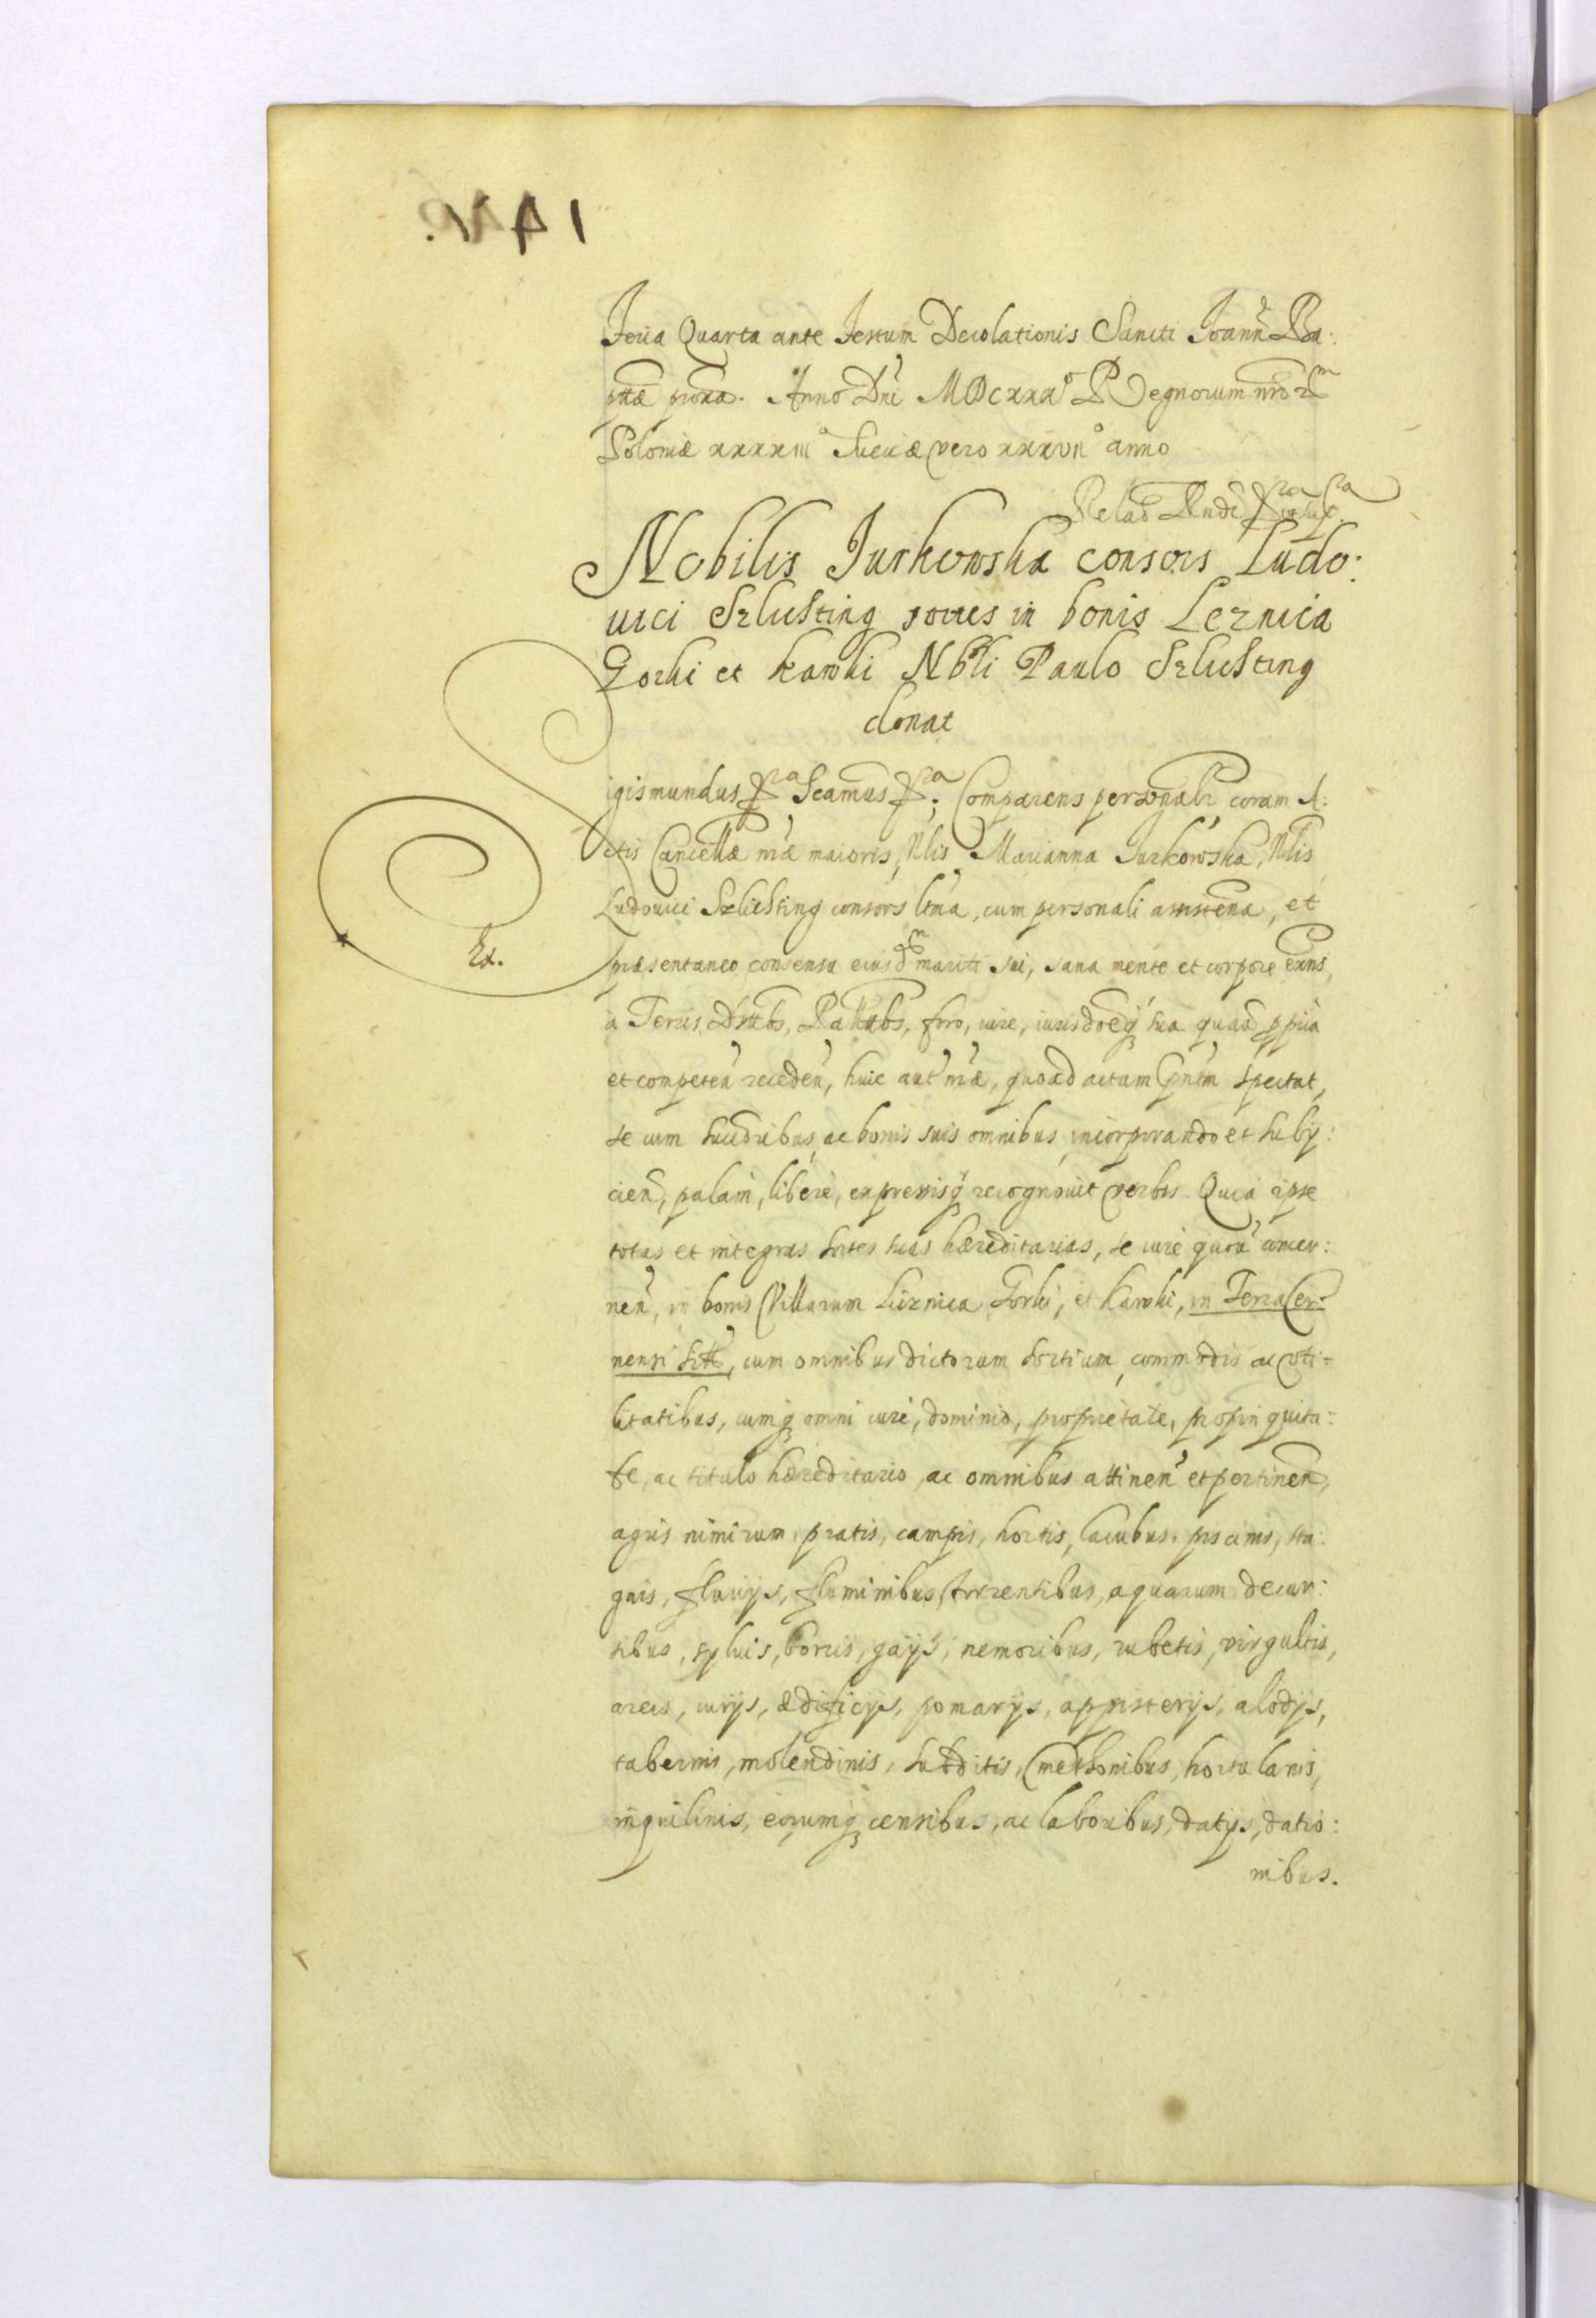 14v.
Feria Quarta ante Festum Decolationis Sancti Joann Ba:
pttæ proxa. Anno Dni MDCXXXº Regnorum nrorm
Poloniæ xxxxiiiº Sueciæ vero xxxviiº anno
Nobilis Jurkowska consors Ludo:
uici Szlichting sortes in bonis Leznica
Gorki et Karski Nbli Paulo Szlichting
donat
Sigismundus Seamus Comparens personalr coram A:
ctis Cancellæ nræ maioris, Nlis Marianna Jurkowska, Nlis
Ludouici Szlichting consors ltma, cum personali assistena, et
præsentaneo consensu eiusdm mariti sui, sana mente et corpore exns,
a Terris, Dttbs, Pallatbs, foro, iure, iurisdoeq sua quad ppria
et competen receden, huic aut nræ, quoad actum pntm spectat,
se cum succribus, ac bonis suis omnibus incorporando et subij:
cien, palam, libere, expressisq recognouit verbis. Quia ipse
totas et integras sortes suas hæreditarias, se iure quou concer:
nen, in bonis Villarum Lieznica Gorki, et Karski, in Terra Cer:
nensi sitt, cum omnibus dictorum sortium, commodis ac vti:
litatibus, cumq omni iure, dominio, proprietate, propinquita:
te, ac titulo hæreditario, ac omnibus attinen et pertinen,
agris nimirum, pratis, campis, hortis, lacubus, piscinis, sta:
gnis, fluuijs, fluminibus, torrentibus, aquarum decur:
sibus, syluis, borris, gaijs, nemoribus, rubetis, virgultis,
areis, curijs, ædificijs, pomarijs, appisterijs, alodijs,
tabernis, molendinis, subditis, cmethonibus, hortulanis,
inquilinis, eorumq censibus, ac laboribus, datijs, datio:
nibus.
Ex.